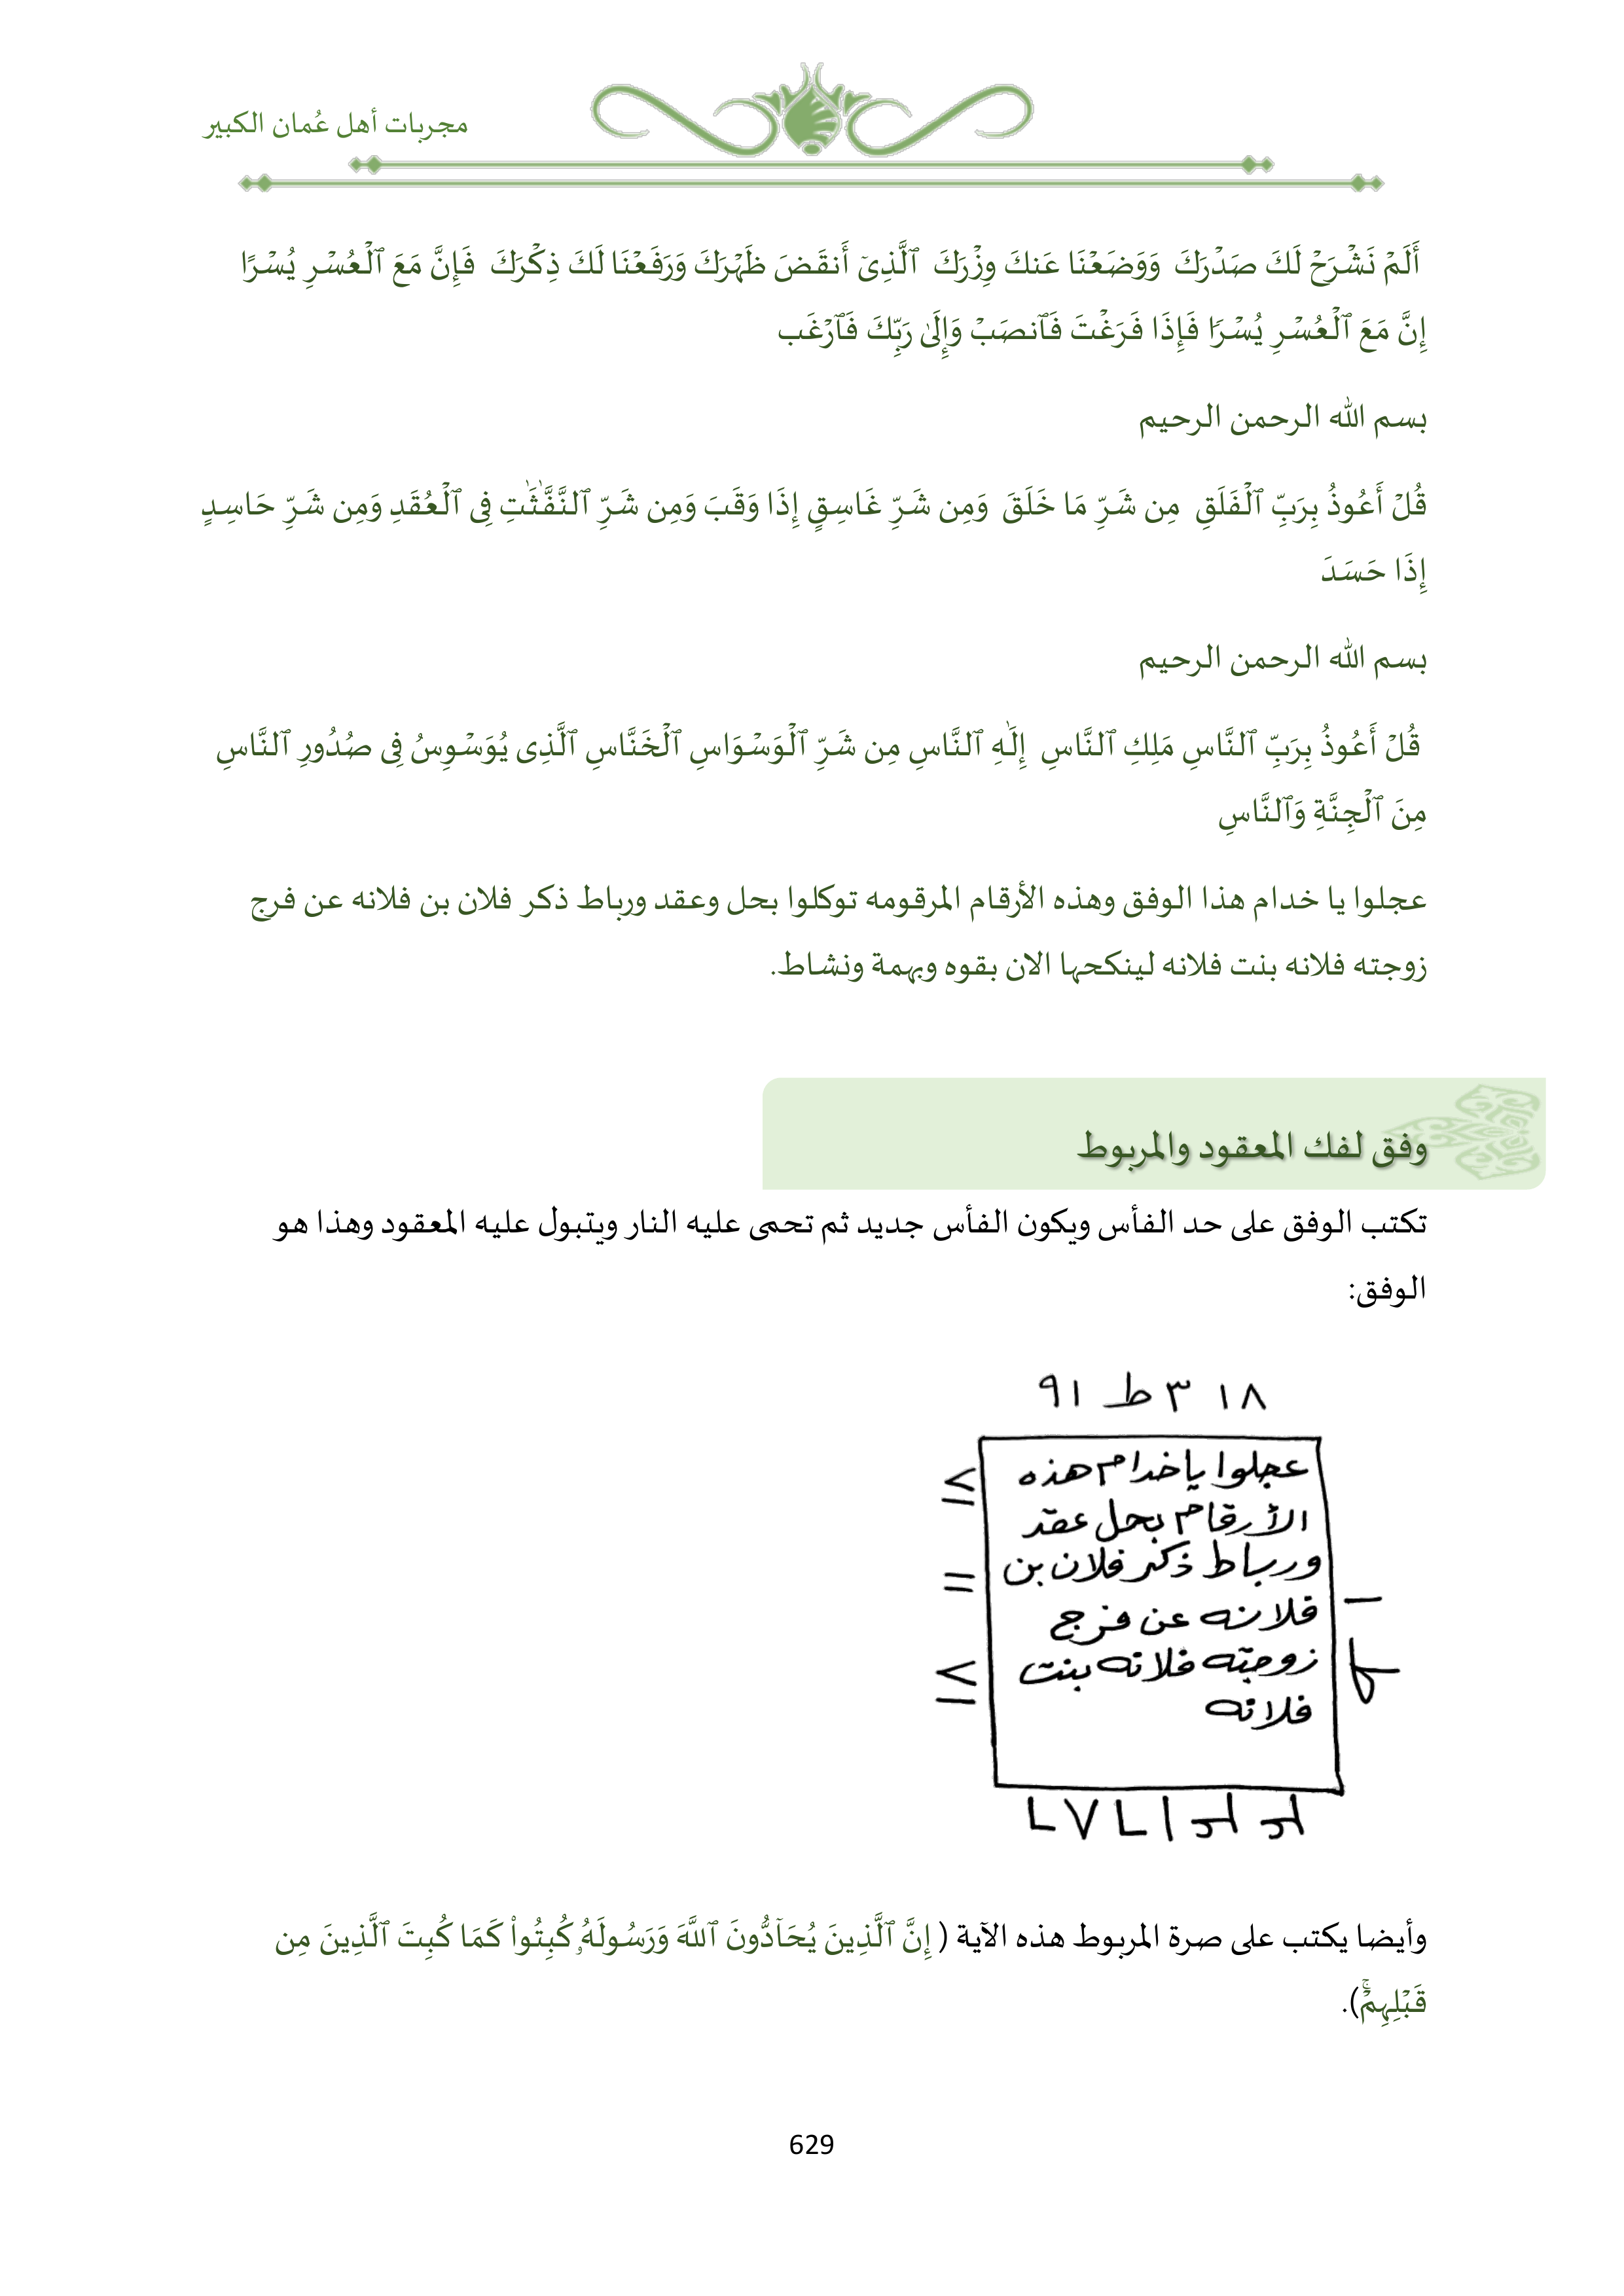 مجربات أهل عُمان الكبير
أَلَمْ نَشْرَحْ لَكَ صَدْرَكَ وَوَضَعْنَا عَنكَ وِزْرَكَ ٱلَّذِىٓ أَنقَضَ ظَهْرَكَ وَرَفَعْنَا لَكَ ذِكْرَكَ فَإِنَّ مَعَ ٱلْعُسْرِ يُسْرًا
إِنَّ مَعَ ٱلْعُسْرِ يُسْرًا فَإِذَا فَرَغْتَ فَٱنصَبْ وَإِلَىٰ رَبِّكَ فَٱرْغَب
بسم الله الرحمن الرحيم
قُلْ أَعُوذُ بِرَبِّ ٱلْفَلَقِ مِن شَرِّ مَا خَلَقَ وَمِن شَرِّ غَاسِقٍ إِذَا وَقَبَ وَمِن شَرِّ ٱلنَّفَّـٰثَـٰتِ فِى ٱلْعُقَدِ وَمِن شَرِّ حَاسِدٍ
إِذَا حَسَدَ
بسم الله الرحمن الرحيم
قُلْ أَعُوذُ بِرَبِّ ٱلنَّاسِ مَلِكِ ٱلنَّاسِ إِلَـٰهِ ٱلنَّاسِ مِن شَرِّ ٱلْوَسْوَاسِ ٱلْخَنَّاسِ ٱلَّذِى يُوَسْوِسُ فِى صُدُورِ ٱلنَّاسِ
مِنَ ٱلْجِنَّةِ وَٱلنَّاسِ
عجلوا يا خدام هذا الوفق وهذه الأرقام المرقومه توكلوا بحل وعقد ورباط ذكر فلان بن فلانه عن فرج
زوجته فلانه بنت فلانه لينكحها الان بقوه وبهمة ونشاط.
وفق لفك المعقود والمربوط
تكتب الوفق على حد الفأس ويكون الفأس جديد ثم تحمى عليه النار ويتبول عليه المعقود وهذا هو
الوفق:
١٨ ٣ ط ٩١
عجلوا ياخدام هذه
الأرقام بحل عقد
ورباط ذكر فلان بن
فلانه عن فرج
زوجته فلانه بنت
فلانه
وأيضا يكتب على صرة المربوط هذه الآية ( إِنَّ ٱلَّذِينَ يُحَآدُّونَ ٱللَّهَ وَرَسُولَهُۥ كُبِتُوا۟ كَمَا كُبِتَ ٱلَّذِينَ مِن
قَبْلِهِمْ ۚ).
629